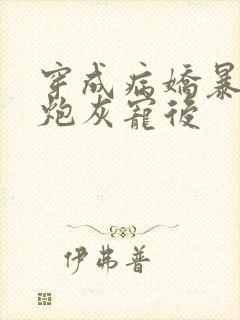 穿成病嬌暴
炮灰寵後
伊弗普